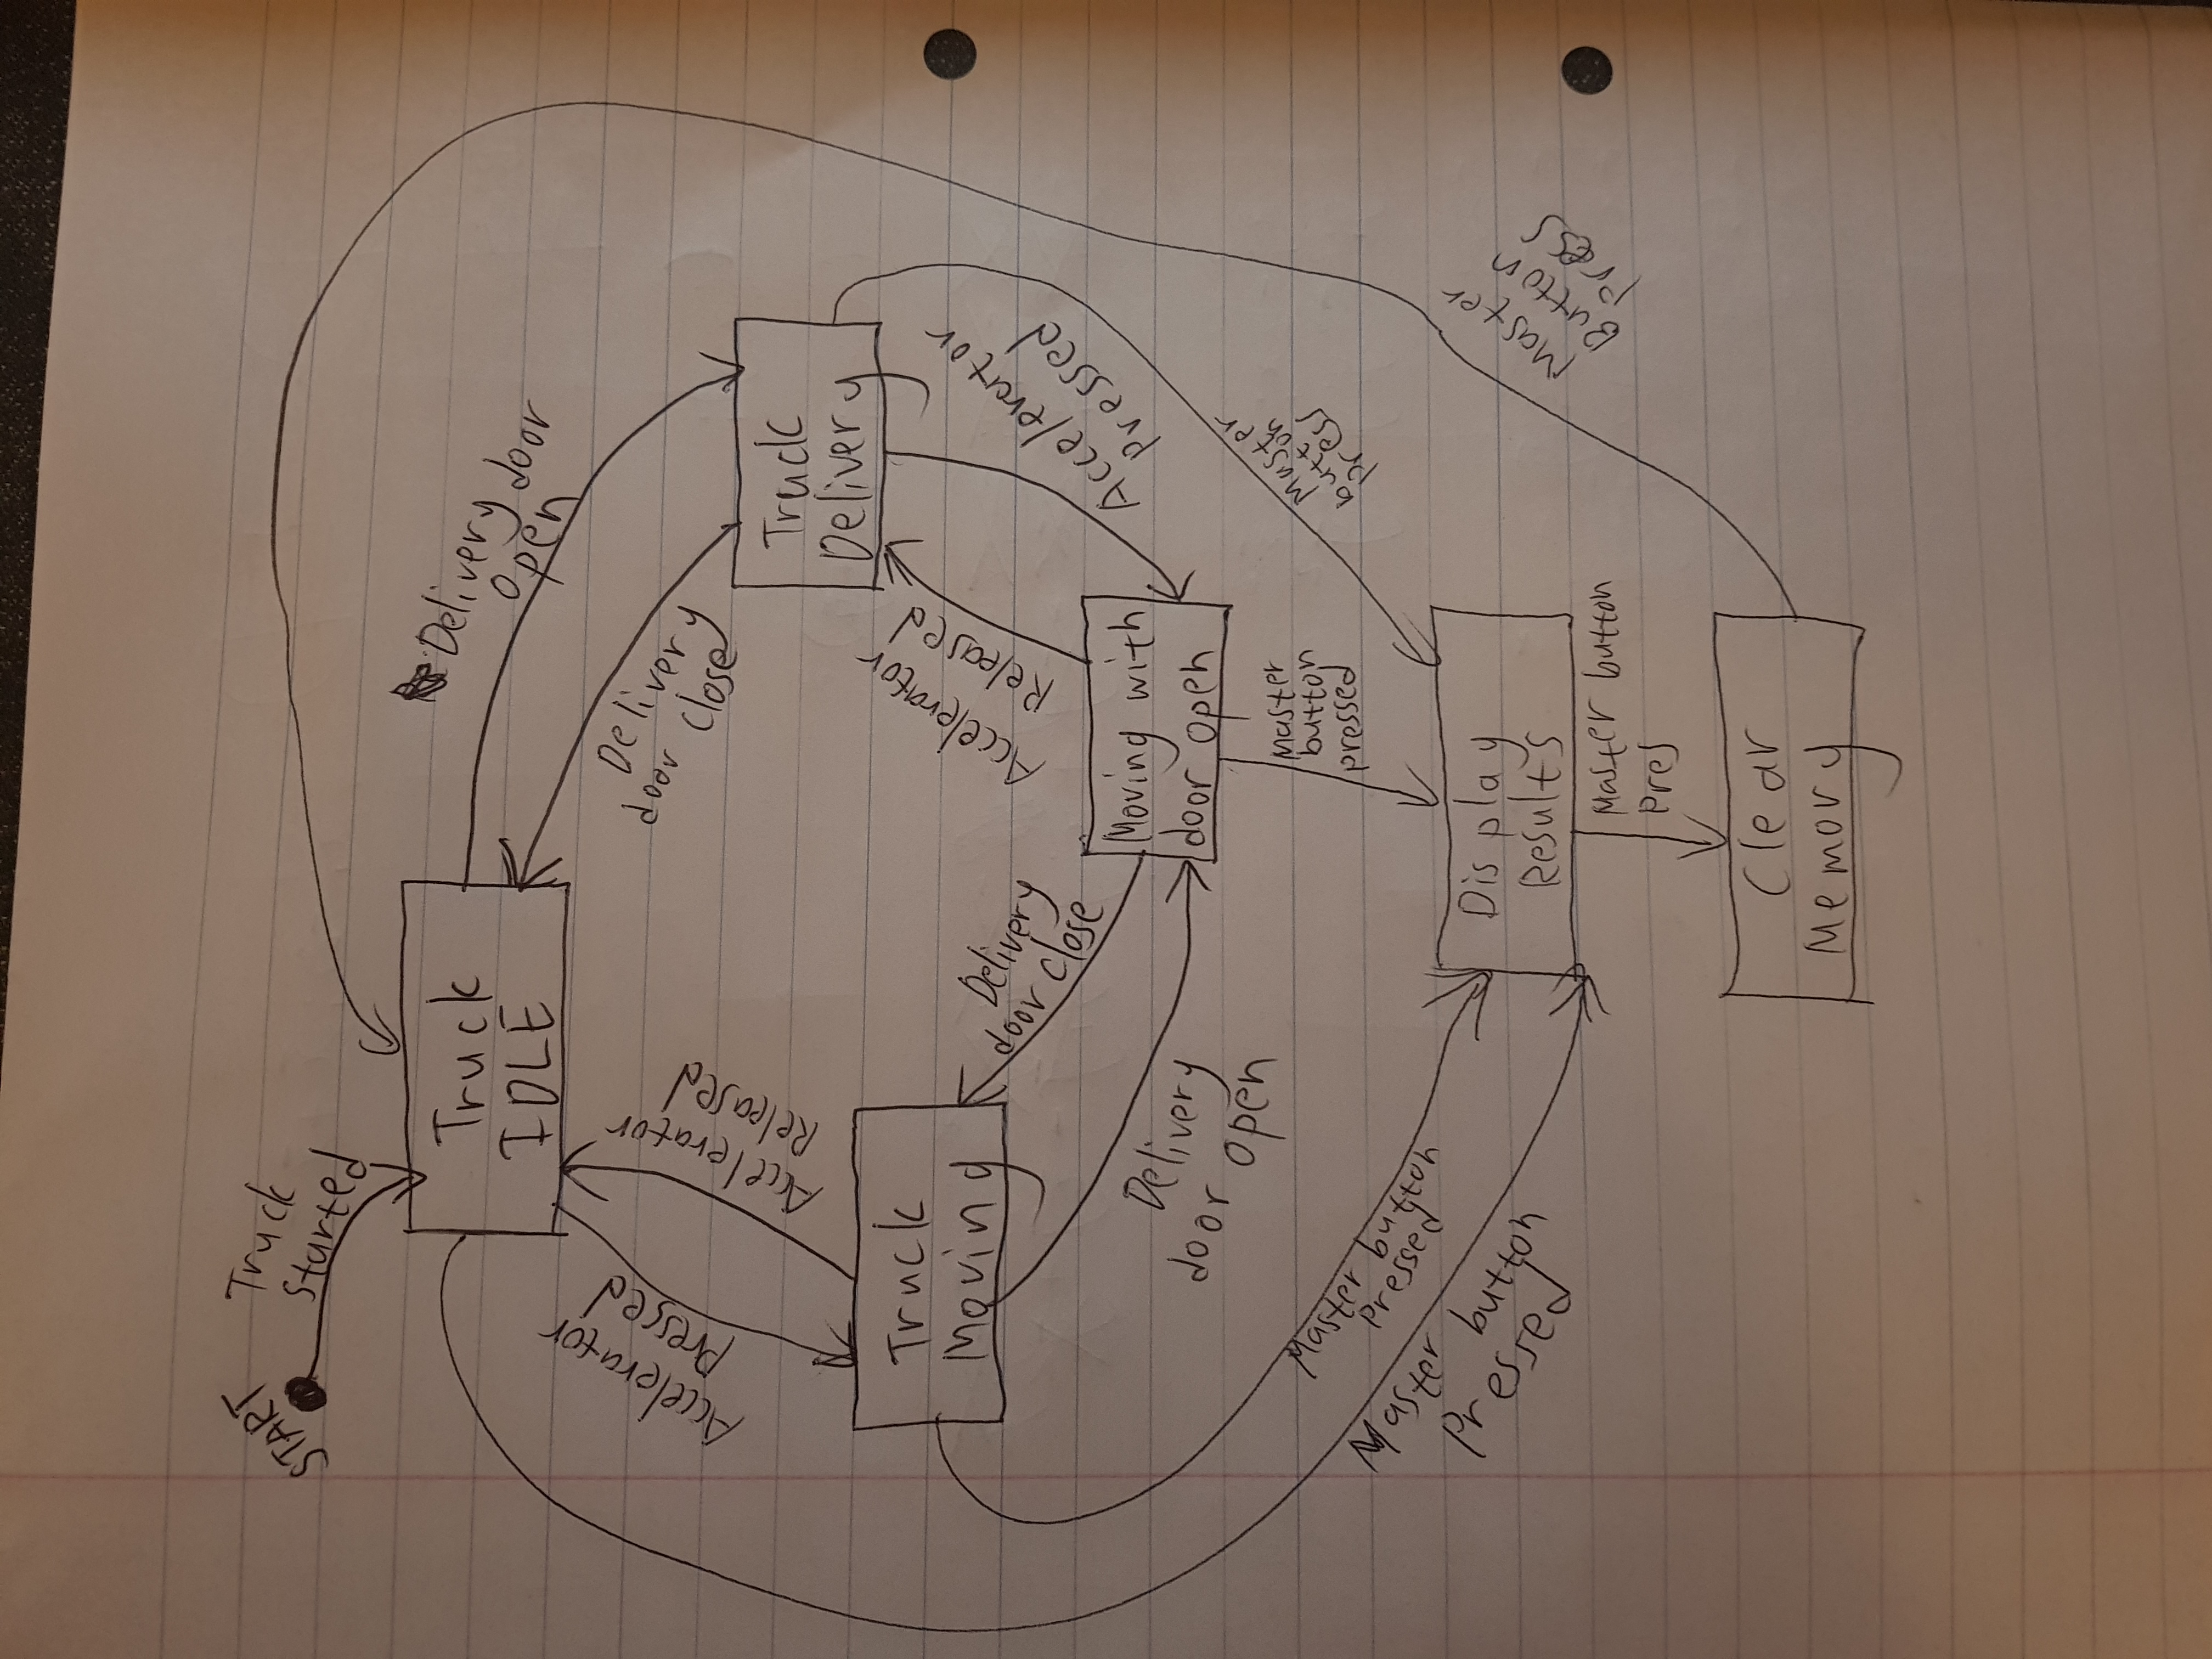 START
Truck
Started
Truck
IDLE
Delivery door
open
Delivery
door
Close
Accelerator
Pressed
Accelerator
Released
Truck
Delivery
Truck
Moving
Delivery
door close
Accelerator
Released
Accelerator
Pressed
Moving with
door open
Delivery
door
open
Master
button
pressed
Master
button
press
Master button
pressed
Master button
Pressed
Display
Results
Master button
Pres
Master
Button
press
Clear
Memory